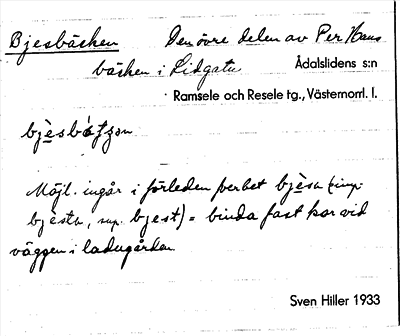 Bjesbäcken Den övre delen av Per Hans
bäcken i Lidgatu Ådalslidens s:n
Ramsele och Resele tg., Västernorrl. l.
Möjl. ingår i förleden verbet bjèsa (imp.
bjèsta, sup. bjest) = binda fast kor vid
väggen i ladugården
Sven Hiller 1933